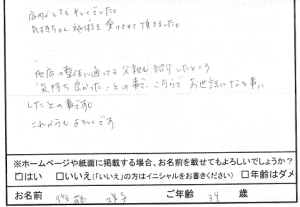 店内がとてもキレイでした。
気持ちよく施術を受けさせて頂きました。
他店の整体に通ってる父親も紹介したところ
気持ち良かったとの事で、こちらでお世話になる事に
したとの事です。
これからもよろしくです
※ホームページや紙面に掲載する場合、お名前を載せてもよろしいでしょうか？
□はい □いいえ(「いいえ」の方はイニシャルをお書きください) □年齢はダメ
お名前 ご年齢 39 歳